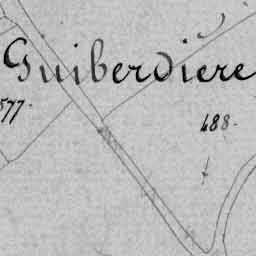 Guiberdiere
577.
488.